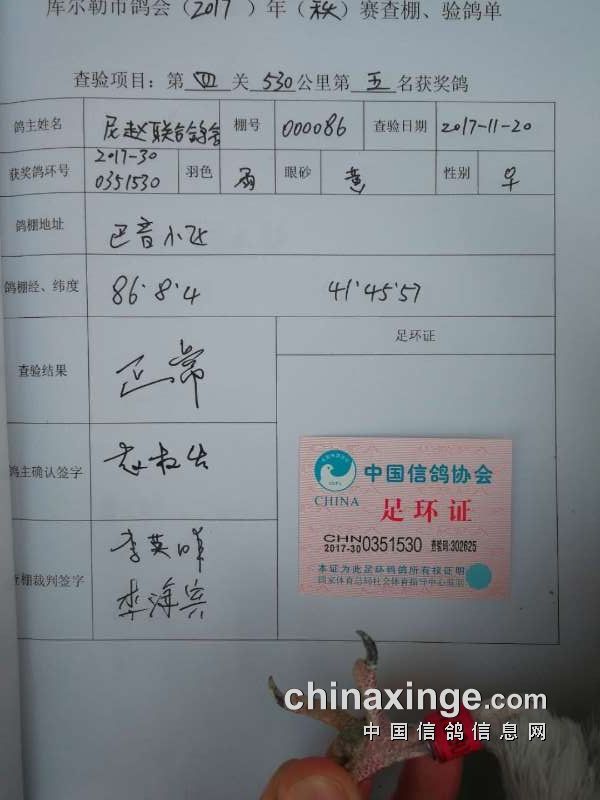 库尔勒市鸽会（2017）年（秋）赛查棚、验鸽单
查验项目：第 四 关 530 公里第 五 名获奖鸽
鸽主姓名 尼赵联合鸽舍 棚号 000086 查验日期 2017-11-20
获奖鸽环号 2017-30 0351530 羽色 雨 眼砂 黄 性别 早
鸽棚地址 巴音小区
鸽棚经、纬度 86.8.4 41.45.57
查验结果 正常 足环证
鸽主确认签字
查棚裁判签字 李英 李海宾
中国信鸽协会
CHINA
足环证
CHN
2017-30 0351530 查验码:302625
本证为此足环码鸽所有权证明
国家体育总局社会体育指导中心监制
chinaxinge.com
中国信鸽信息网